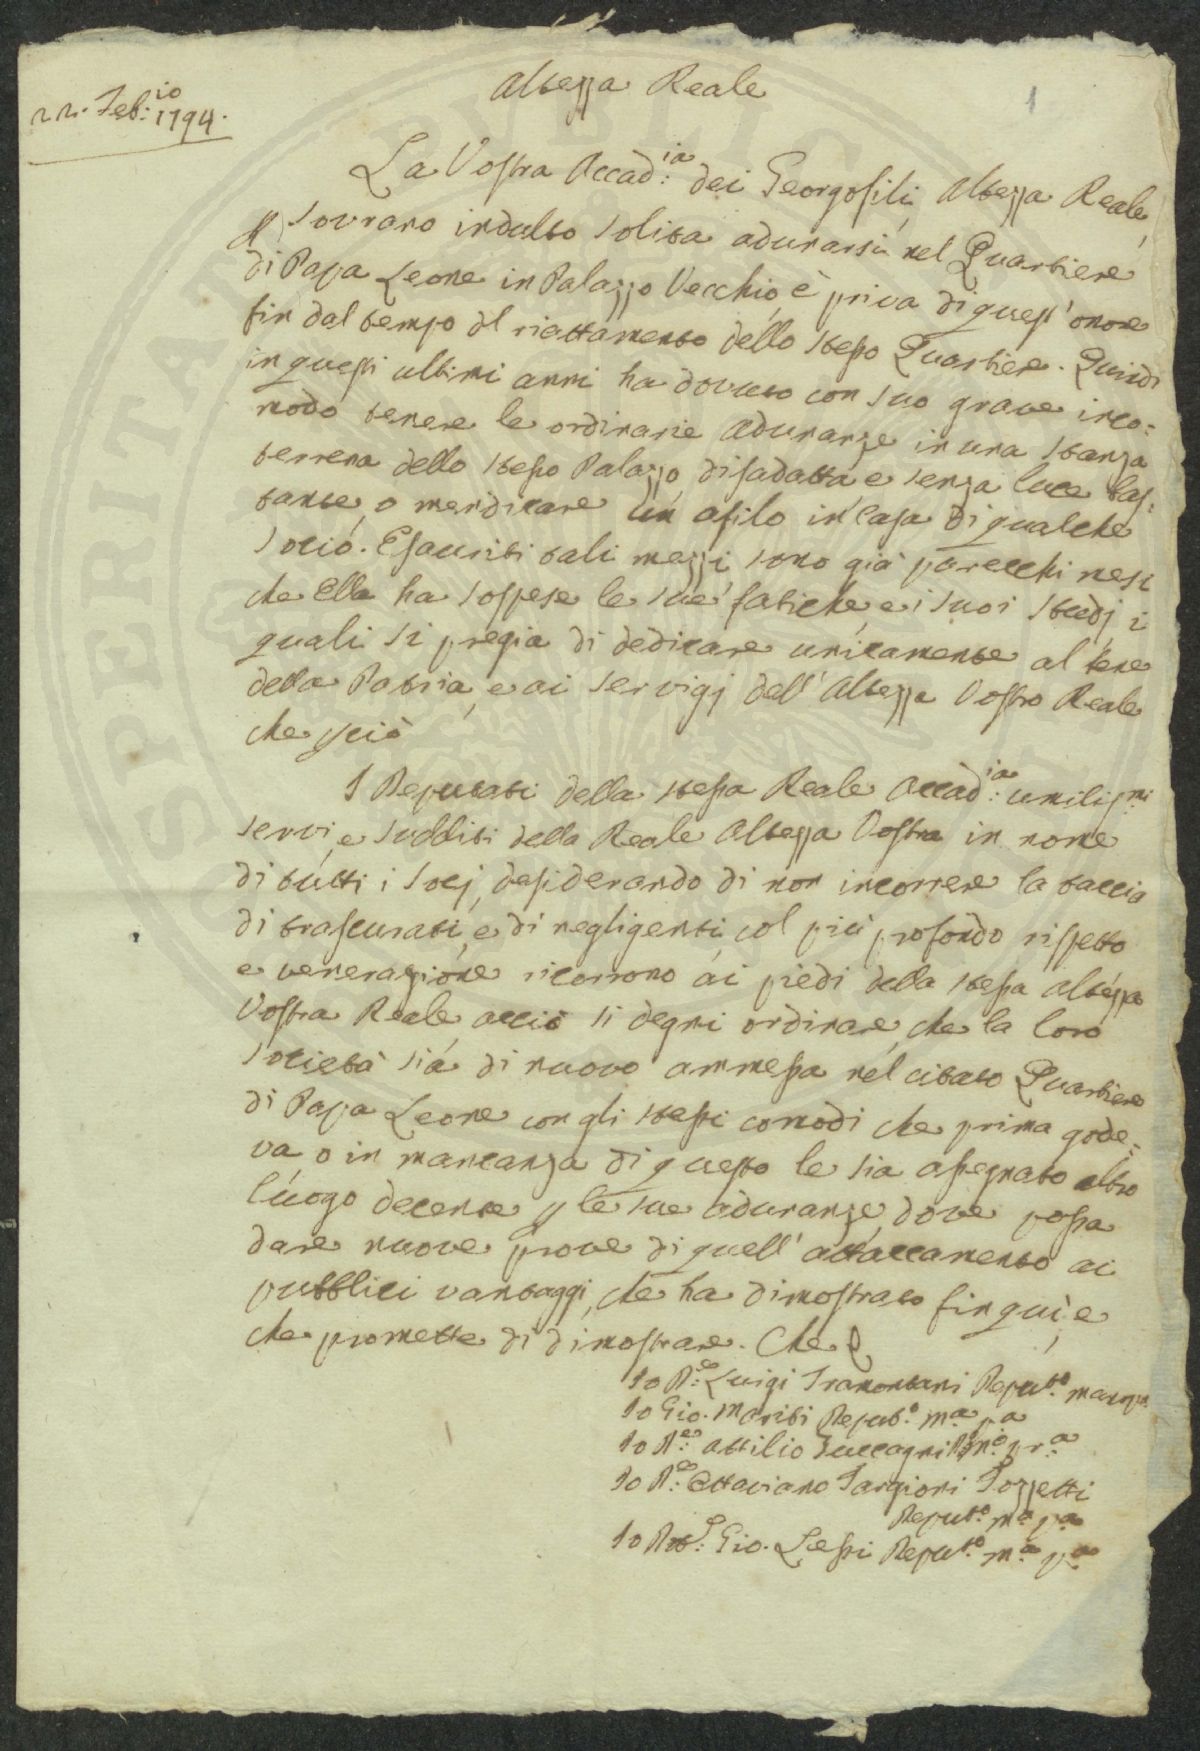 Altezza Reale
1
22. Feb:io 1794.
La Vostra Accad:ia dei Georgofili, Altezza Reale,
p sovrano indulto solita adunarsi nel Quartiere
di Papa Leone in Palazzo Vecchio, è priva di quest'onore
fin dal tempo del riattamento dello stesso Quartiere. Quindi
in questi ultimi anni ha dovuto con suo grave inco=
modo tenere le ordinarie adunanze in una stanza
terrena dello stesso Palazzo disadatta e senza luce bas=
tante, o mendicare un asilo in Casa di qualche
Socio. Esauriti tali mezzi sono già parecchi mesi
che Ella ha sospese le sue fatiche, e i suoi studj, i
quali si pregia di dedicare unicamente al bene
della Patria, e ai servigj dell'Altezza Vostra Reale
che pciò
I Deputati della stessa Reale Accad:ia umilissmi
servi, e sudditi della Reale Altezza Vostra in nome
di tutti i Socj, desiderando di non incorrere la taccia
di trascurati, e di negligenti, col più profondo rispetto
e venerazione ricorrono ai piedi della stessa Altezza
Vostra Reale, acciò si degni ordinare, che la loro
società sia di nuovo ammessa nel citato Quartiere
di Papa Leone con gli stessi comodi che prima gode=
va, o in mancanza di questo le sia assegnato altro
luogo decente p le sue adunanze, dove possa
dare nuove prove di quell'attaccamento ai
pubblici vantaggi, che ha dimostrato fin quì, e
che promette di dimostrare. Che
Io D:e Luigi Tramontani Deput:o manop
Io Gio. Mariti Deput:o m:a p:a
Io D:e Attilio Zuccagni m:o pr:a
Io D:e Ottaviano Targioni Tozzetti
Deput:o m:a p:a
Io Gio. Lessi Deput:o m:a p:a